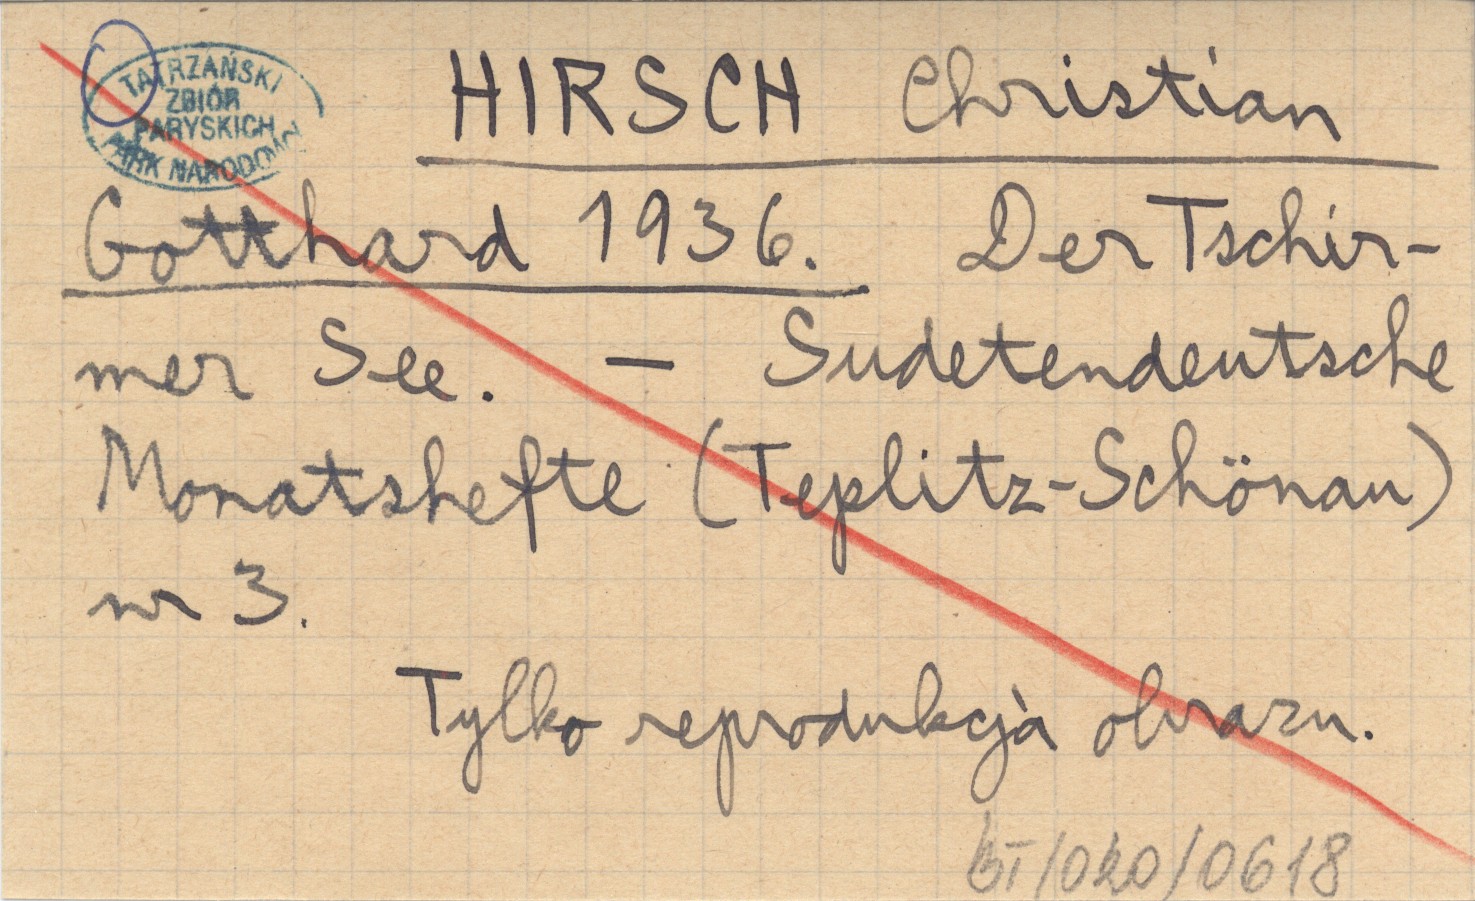 TATRZAŃSKI
ZBIÓR
PARYSKICH
PARK NARODOWY
HIRSCH Christian
Gotthard 1936. Der Tschir-
mer See. — Sudetendeutsche
Monatshefte (Teplitz-Schönau)
nr 3.
Tylko reprodukcja obrazu.
BT/020/0618